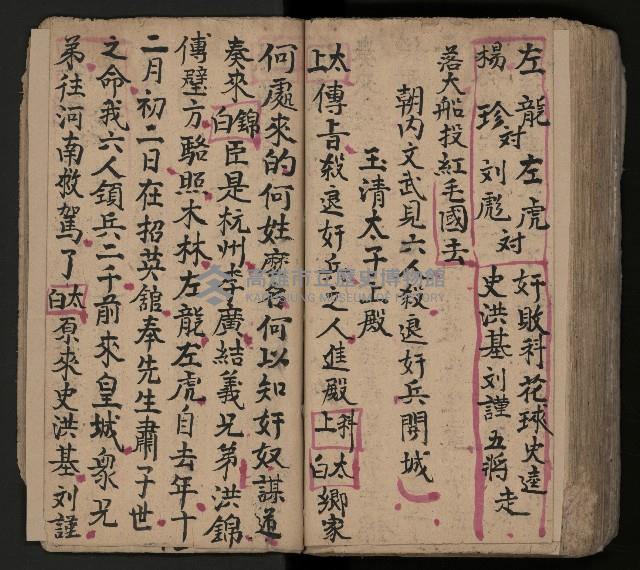 左龍對左虎
楊珍對刘彪對
奸敗科花球史達
史洪基刘謹五將走
落大船投紅毛國去
朝内文武見六人殺退奸兵開城
玉清太子上殿
太上傳旨殺退奸兵之人進殿科上太白鄉家
何處來的何姓麽名何以知奸奴謀道
奏來錦白臣是杭州李廣結義兄弟洪錦
傅璧方駱照木林左龍左虎自去年十
二月初二日在招英舘奉先生肅子世
之命我六人領兵二千前來皇城衆兄
弟往河南救駕了太白原來史洪基刘謹
高雄市立歷史博物館
KAOHSIUNG MUSEUM OF HISTORY